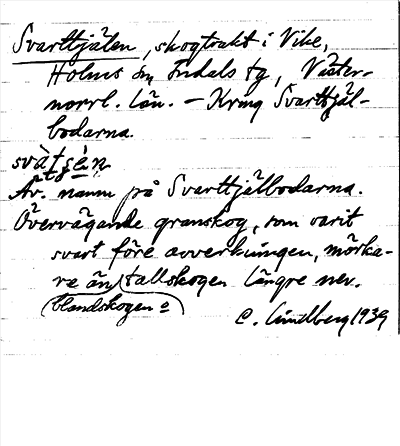 Svarttjäten, skogtrakt i Vike,
Holms sn Indals tg, Väster-
norrl. län. – Kring Svarttjäl-
bodarna.
svàtʃè.n
Äv. namn på Svarttjälbodarna.
Övervägande granskog, som varit
svart före avverkningen, mörka-
re än tallskogen längre ner.
(blandskogen o)
C. Lindberg 1939